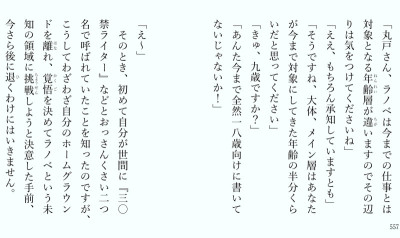 「丸戸さん、ラノベは今までの仕事とは
対象となる年齢層が違いますのでその辺
りは気をつけてくださいね」
「ええ、もちろん承知していますとも」
「そうですね、大体、メイン層はあなた
が今まで対象にしてきた年齢の半分くら
いだと思ってください」
「きゅ、九歳ですか？」
「あんた今まで全然一八歳向けに書いて
ないじゃないか！」
「え〜」
そのとき、初めて自分が世間に『三〇
禁ライター』などとおっさんくさい二つ
名で呼ばれていたことを知ったのですが、
こうしてわざわざ自分のホームグラウン
ドを離れ、覚悟を決めてラノベという未
知の領域に挑戦しようと決意した手前、
今さら後に退くわけにはいきません。
557